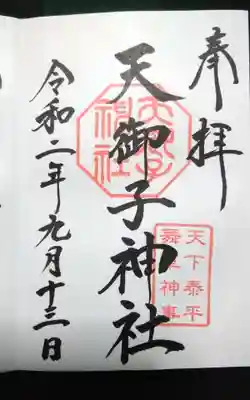 奉拝
天御子神社
令和二年九月十三日
天下泰平